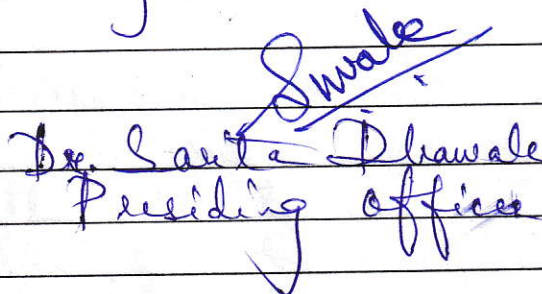 Dr. Sarita Dhawale
Presiding officer